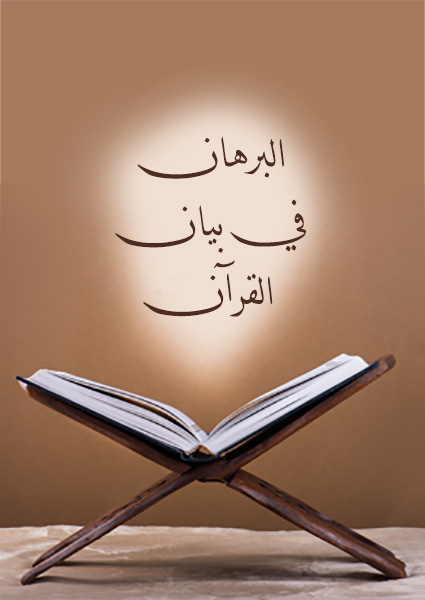 البرهان
في بيان
القرآن